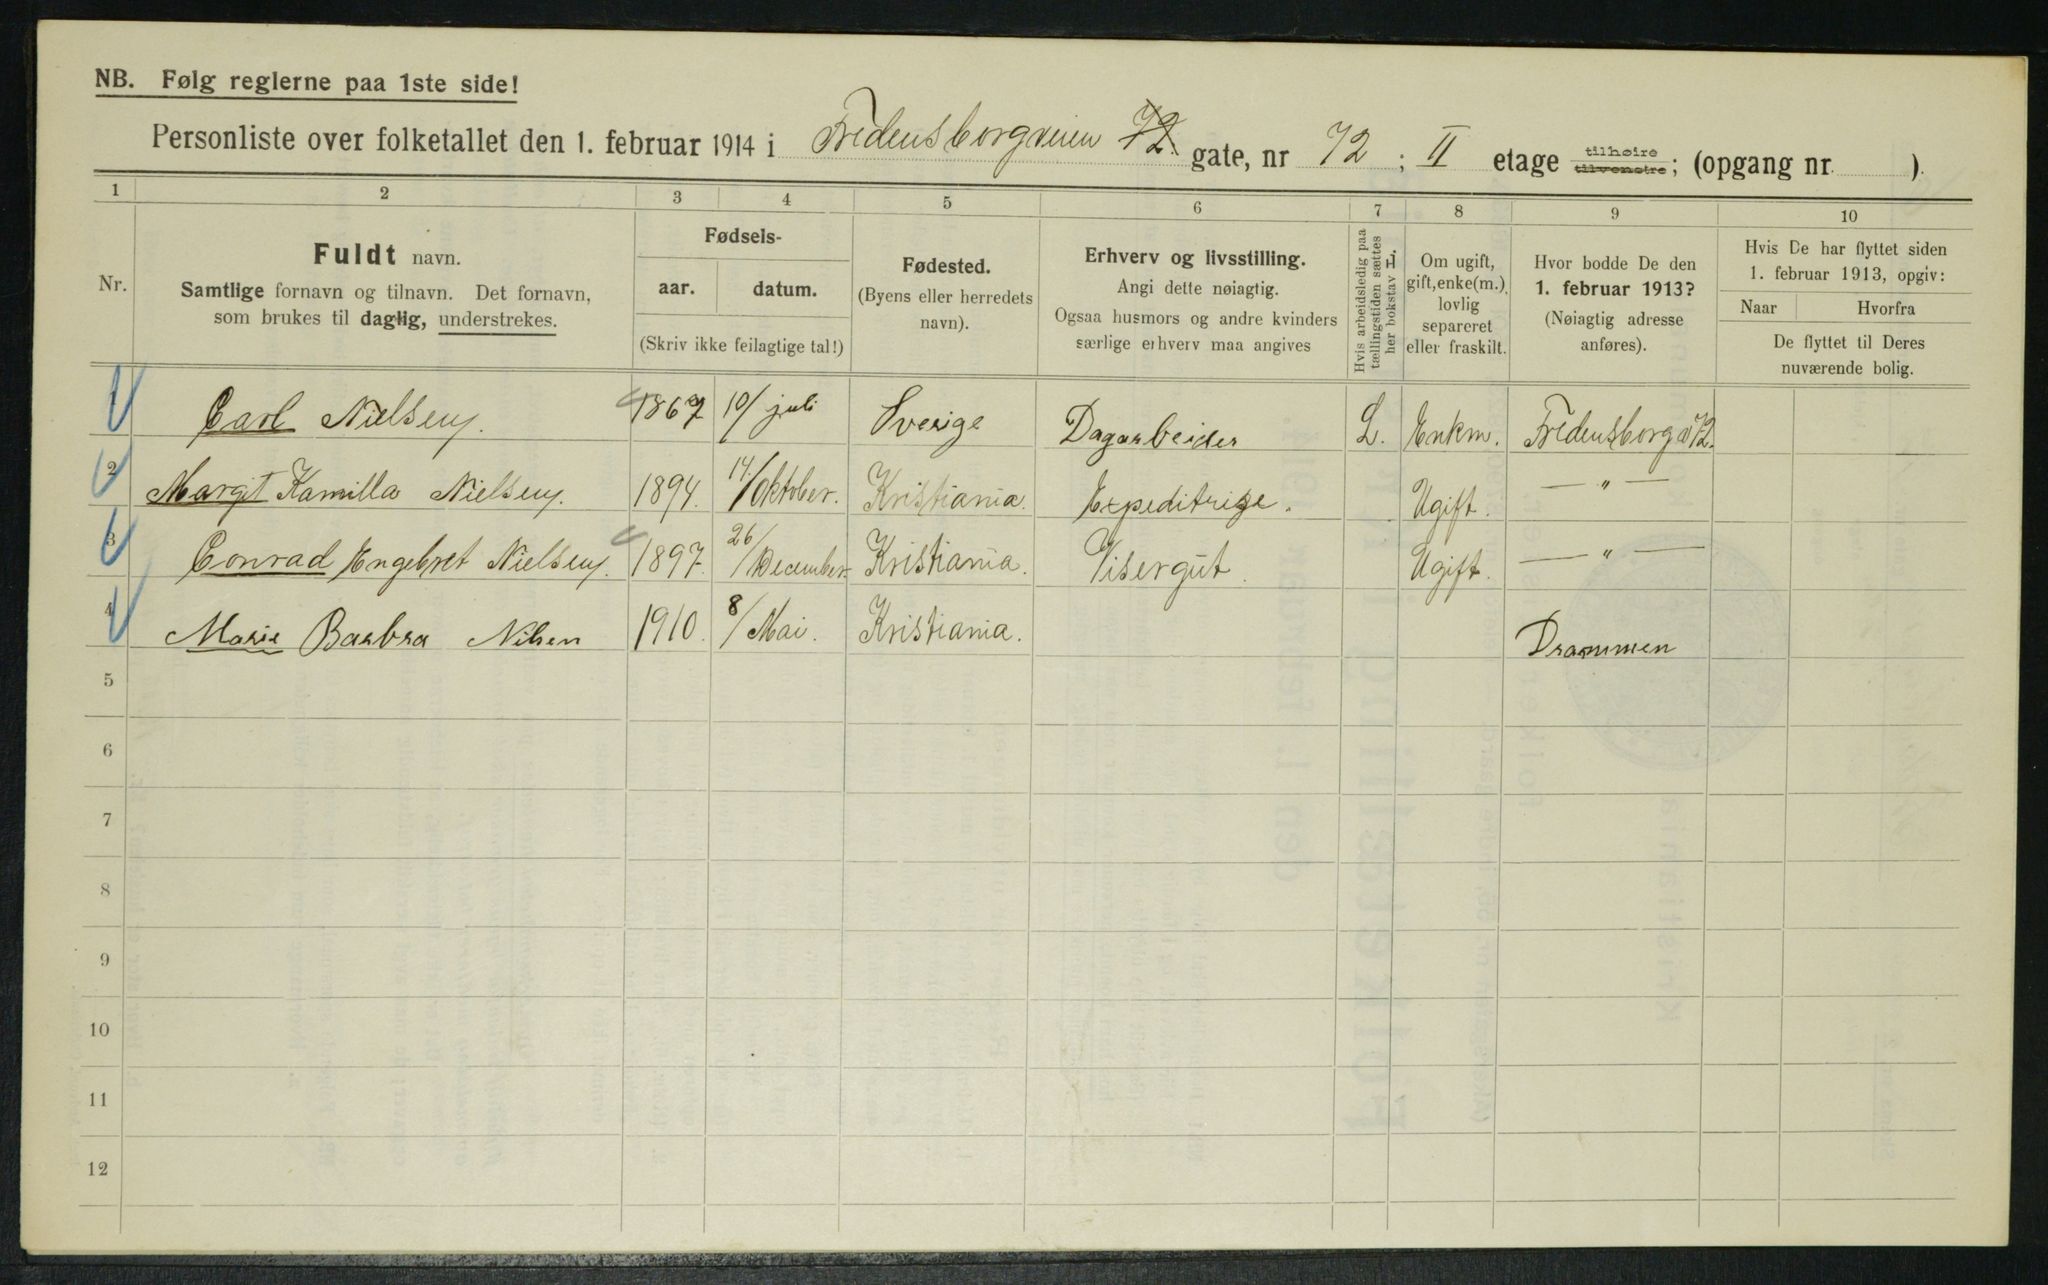 NB. Følg reglerne paa 1ste side!
Personliste over folketallet den 1. februar 1914 i Fredensborgveien 72 gate, nr 72; II etage tilhøire tilvenstre; (opgang nr. ).
1 2 3 4 5 6 7 8 9 10
Nr.
Fuldt navn.
Samtlige fornavn og tilnavn. Det fornavn,
som brukes til daglig, understrekes.
Fødsels-
aar. datum.
(Skriv ikke feilagtige tal!)
Fødested.
(Byens eller herredets
navn).
Erhverv og livsstilling.
Angi dette nøiagtig.
Ogsaa husmors og andre kvinders
særlige erhverv maa angives
Hvis arbeidsledig paa
tællingstiden sættes
her bokstav L.
Om ugift,
gift, enke(m.),
lovlig
separeret
eller fraskilt.
Hvor bodde De den
1. februar 1913?
(Nøiagtig adresse
anføres).
Hvis De har flyttet siden
1. februar 1913, opgiv:
Naar Hvorfra
De flyttet til Deres
nuværende bolig.
1 Carl Nielsen. 1867 10/ juli Sverige Dagarbeider L. Enkm. Fredensborgv 72.
2 Margit Kamilla Nielsen. 1894. 14/ Oktober. Kristiania. Expeditrise. Ugift. — " —
3 Conrad Engebret Nielsen. 1897. 26/ December. Kristiania. Visergut. Ugift. — " —
4 Marie Barbra Nilsen 1910. 8/ Mai. Kristiania. Drammen
5
6
7
8
9
10
11
12